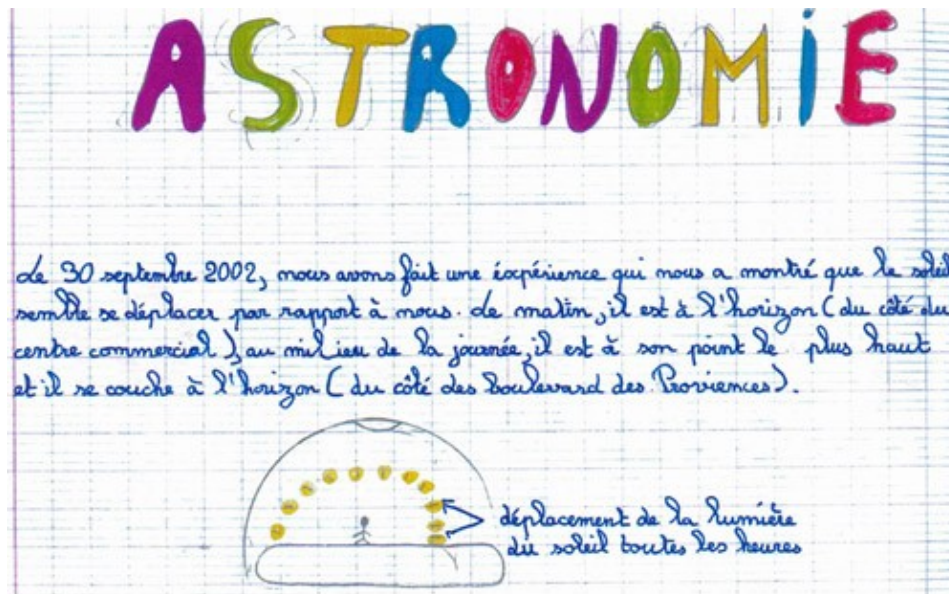 ASTRONOMiE
Le 30 septembre 2002, nous avons fait une éxpérience qui nous a montré que le soleil
semble se déplacer par rapport à nous. Le matin, il est à l'horizon (du côté du
centre commercial), au milieu de la journée, il est à son point le plus haut
et il se couche à l'horizon (du côté des boulevard des Proviences).
déplacement de la lumière
du soleil toutes les heures